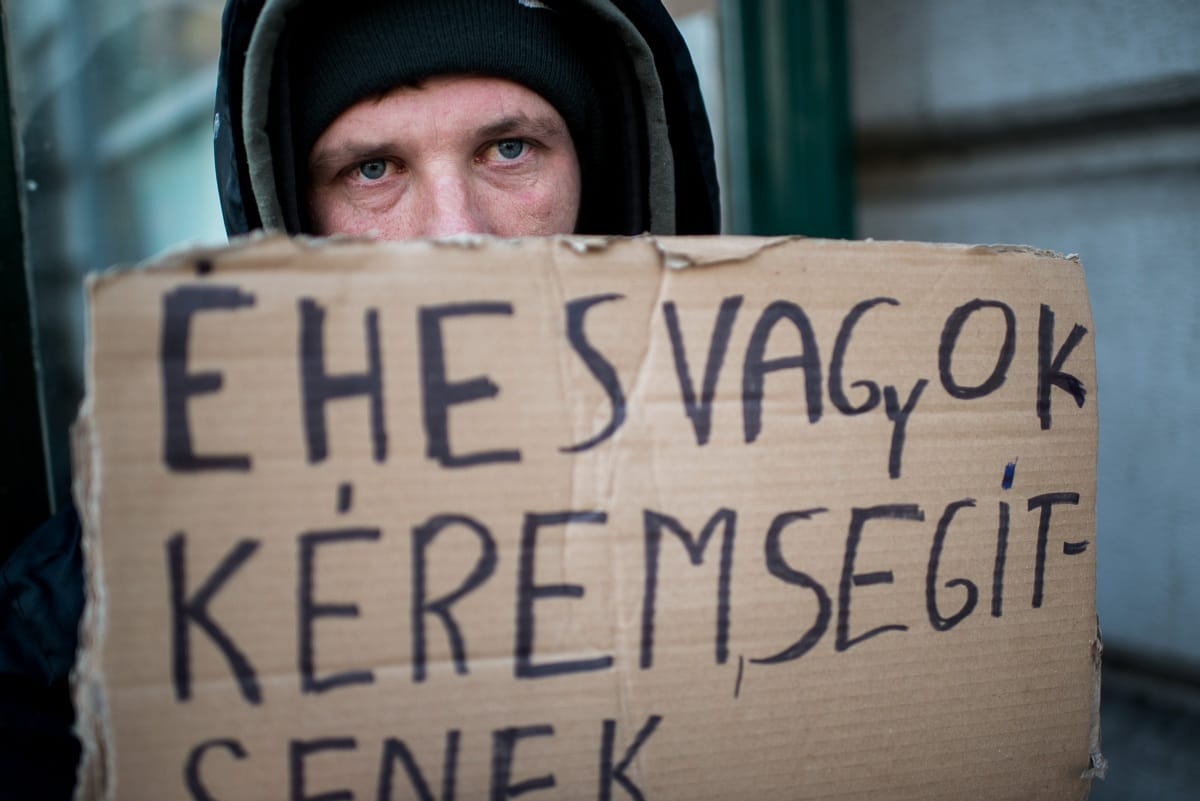 ÉHES VAGYOK
KÉREM, SEGÍT-
SENEK